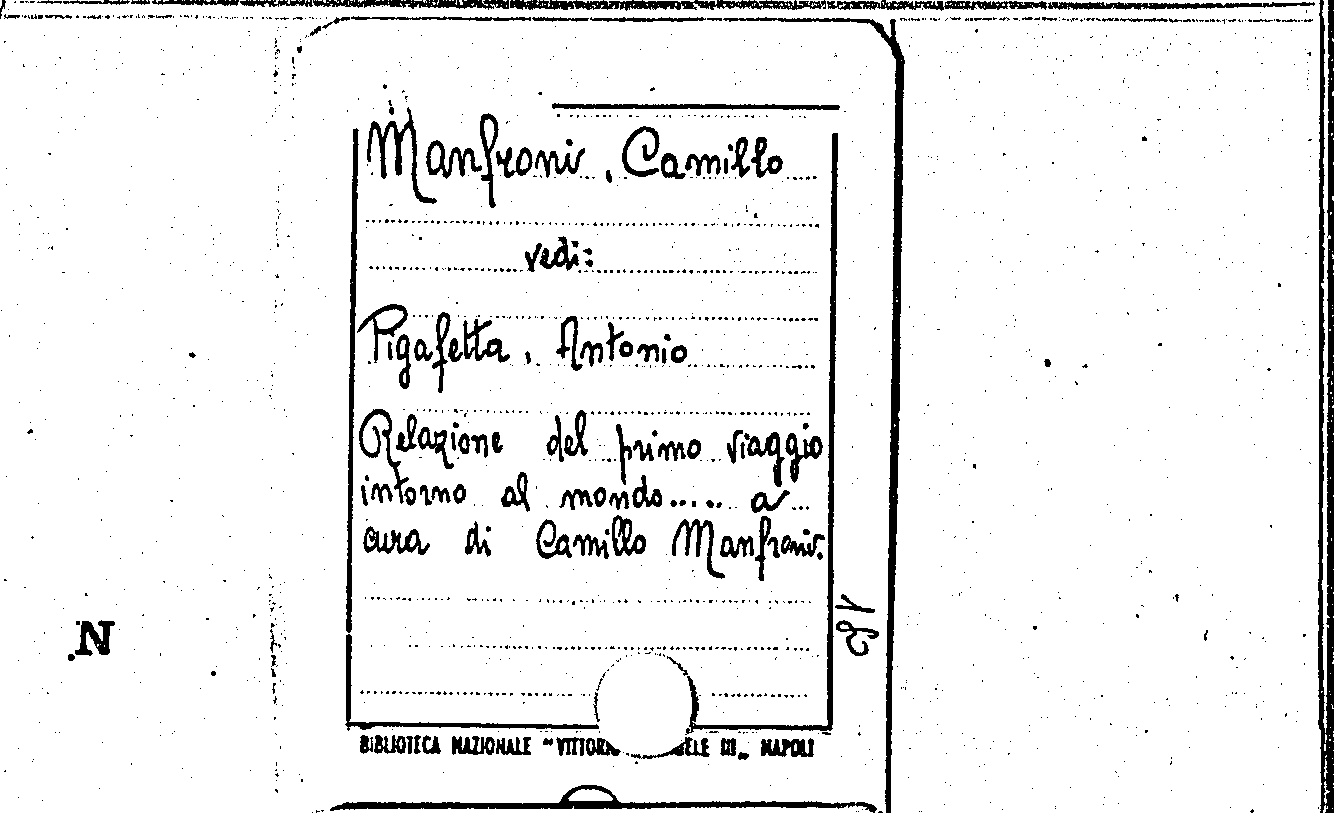 Manfroni, Camillo
vedi:
Pigafetta, Antonio
Relazione del primo viaggio
intorno al mondo..... a
cura di Camillo Manfroni.
N
BIBLIOTECA NAZIONALE "VITTORIO ELE III„ NAPOLI